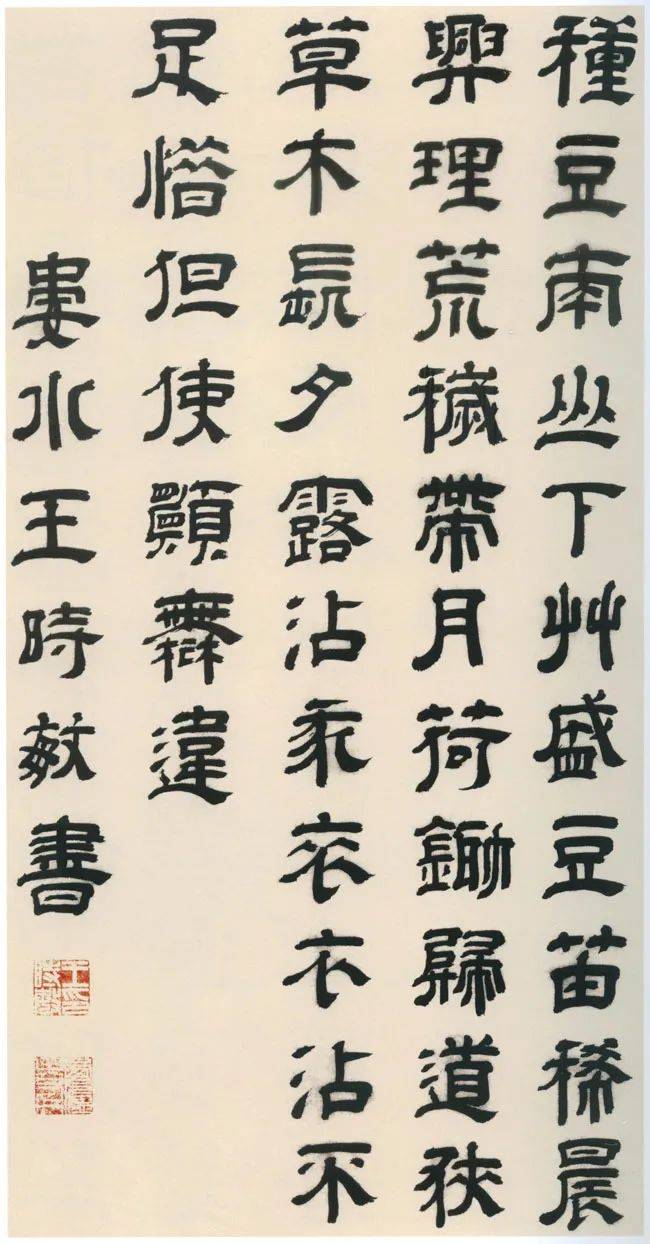 種豆南山下艸盛豆苗稀晨
興理荒穢帶月荷鋤歸道狹
草木長夕露沾我衣衣沾不
足惜但使願無違
婁水王時敏書
王印時敏